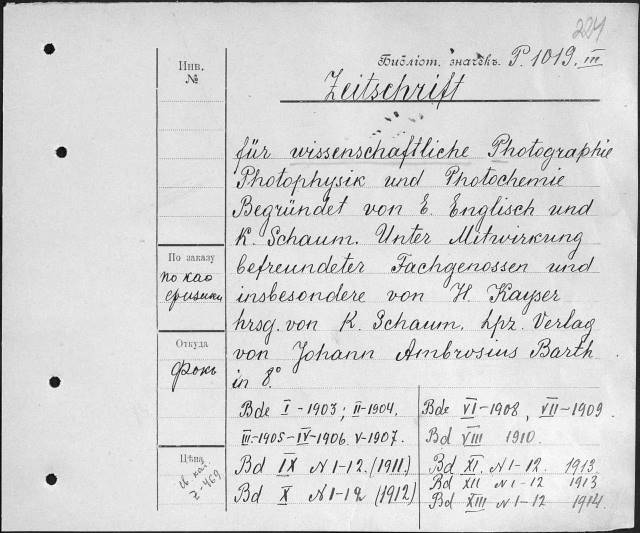 224
Библіот. значекъ. P. 1019. III
Инв.
№
Zeitschrift
für wissenschaftliche Photographie
Photophysik und Photochemie
Begründet von E. Englisch und
K. Schaum. Unter Mitwirkung
befreundeter Fachgenossen und
insbesondere von H. Kayser
hrsg. von K. Schaum. Lpz. Verlag
von Johann Ambrosius Barth
in 8°.
По заказу
по као
физики
Откуда
Фокъ
Цѣна
Z-469
Bde I - 1903; II - 1904.
III - 1905 - IV - 1906. V - 1907.
Bd IX N 1-12. (1911.)
Bd X N 1-12 (1912)
Bde VI - 1908, VII - 1909.
Bd VIII 1910.
Bd XI. N 1-12. 1913.
Bd XII N 1-12 1913
Bd XIII N 1-12 1914.